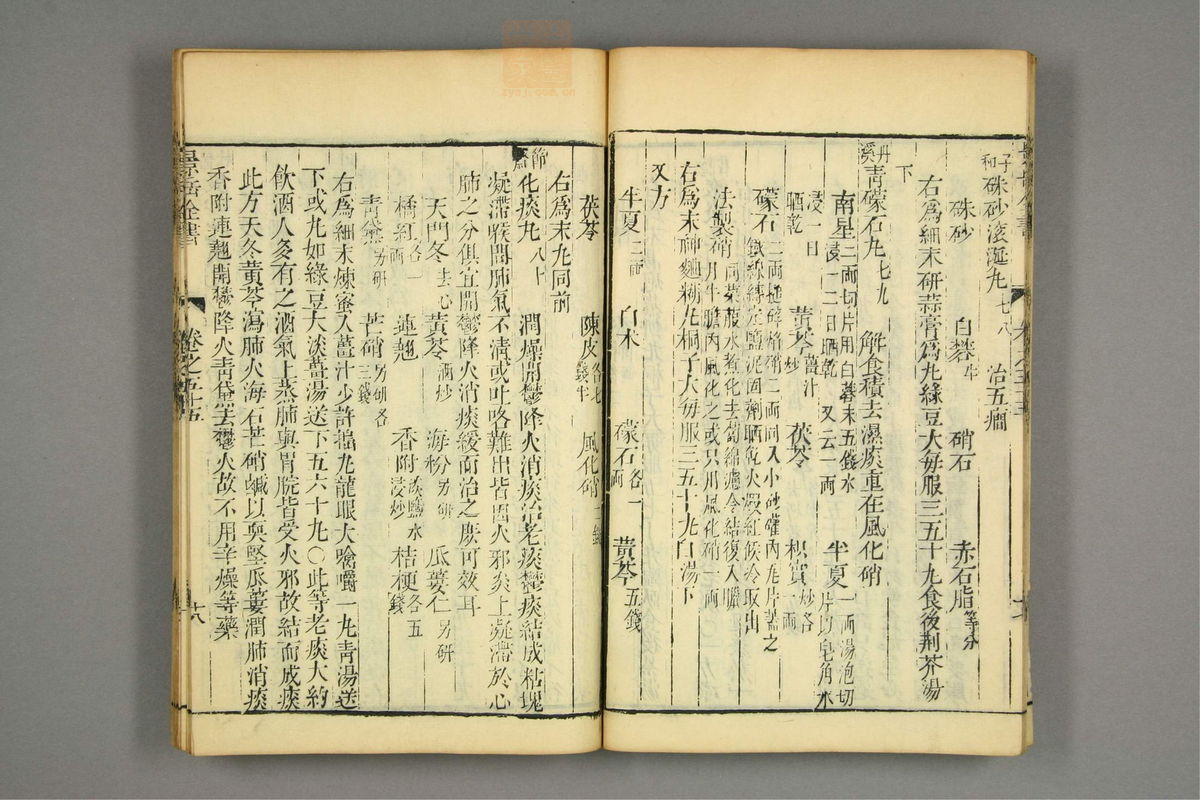 子和 硃砂滾涎丸 七八 治五癎
硃砂 白礬生 硝石 赤石脂等分
右為細末研蒜膏為丸綠豆大每服三五十丸食後荆芥湯
下
丹溪 青礞石丸 七九 解食積去濕痰重在風化硝
南星二兩切片用白礬末五錢水浸一二日晒乾 又云一兩 半夏一兩湯泡切片以皂角水
浸一日晒乾 黃芩薑汁炒 茯苓 枳實炒各一兩
礞石二兩搥碎焰硝二兩同入小砂罐內瓦片葢之鐵線縛定鹽泥固劑晒乾火煅紅候冷取出
法製硝同菜菔水煮化去菔綿濾令結復入臘月牛膽內風化之或只用風化硝一兩
右為末神麯糊丸桐子大每服三五十丸白湯下
又方
半夏二兩 白术 礞石各一兩 黃芩五錢
茯苓 陳皮各七錢半 風化硝二錢
右為末丸同前
節齋 化痰丸 八十 潤燥開鬱降火消痰治老痰鬱痰結成粘塊
凝滯喉間肺氣不清或吐咯難出皆因火邪炎上凝滯於心
肺之分俱宜開鬱降火消痰緩而治之庶可效耳
天門冬去心 黃芩酒炒 海粉另研 瓜蔞仁另研
橘紅各一兩 連翹 香附淡鹽水浸炒 桔梗各五錢
青黛另研 芒硝另研各三錢
右為細末煉蜜入薑汁少許搗丸龍眼大噙嚼一丸青湯送
下或丸如綠豆大淡薑湯送下五六十丸○此等老痰大約
飲酒人多有之酒氣上蒸肺與胃脘皆受火邪故結而成痰
此方天冬黃芩瀉肺火海石芒硝鹹以耎堅瓜蔞潤肺消痰
香附連翹開鬱降火青黛去鬱火故不用辛燥等藥
景岳全書 卷之五十五 十八
zysj.com.cn